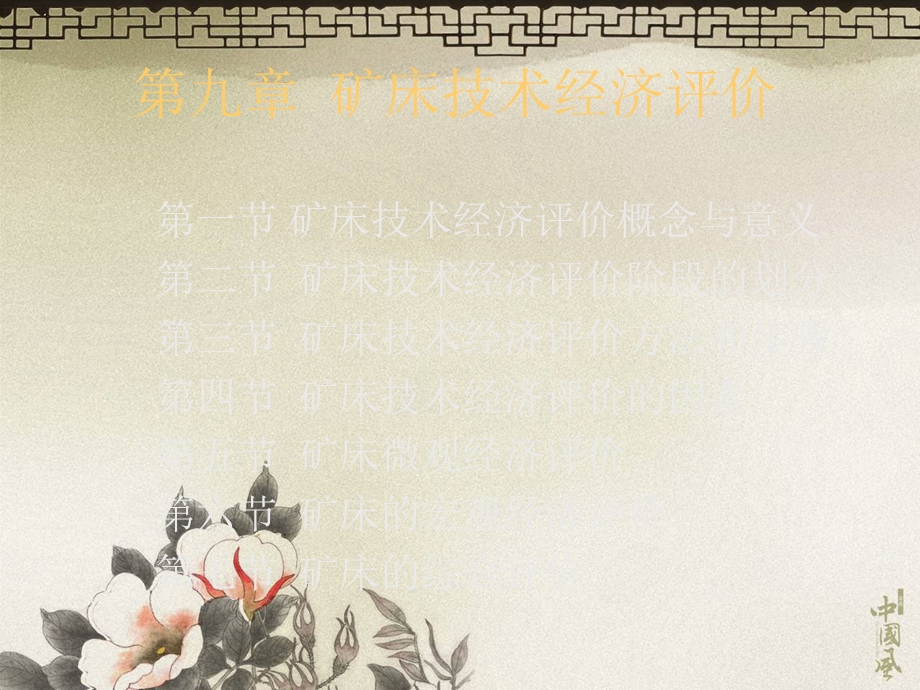 第九章 矿床技术经济评价
第一节 矿床技术经济评价概念与意义
第二节 矿床技术经济评价阶段的划分
第三节 矿床技术经济评价方法
第四节 矿床技术经济评价的
第五节 矿床微观经济评价
第六节 矿床的
矿床的
中國风